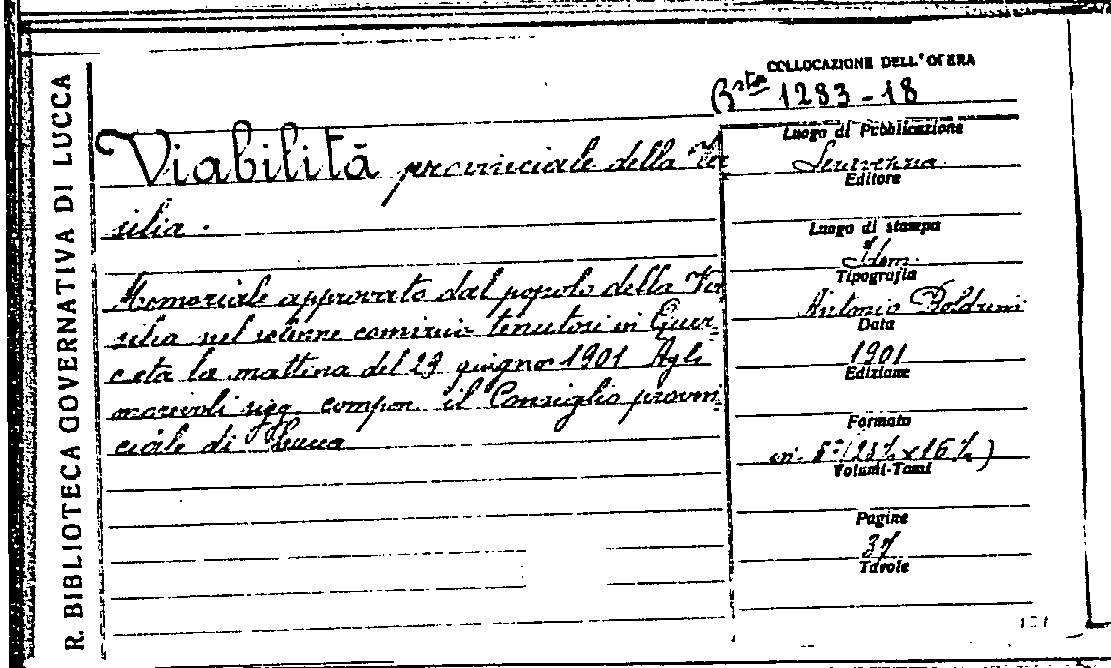 R. BIBLIOTECA GOVERNATIVA DI LUCCA
COLLOCAZIONE DELL'OPERA
B.sta 1283-18
Viabilità provinciale della Ver
silia.
Memoriale approvato dal popolo della Ver
silia nel solenne comizio tenutosi in Quer-
ceta la mattina del 29 giugno 1901 Agli
morevoli sigg. compon. il Consiglio provin
ciale di Lucca
Luogo di Pubblicazione
Seravezza
Editore
Luogo di stampa
Idem
Tipografia
Antonio
Data
1901
Edizione
Formato
in-8°
Volumi-Tomi
Pagine
37
Tavole